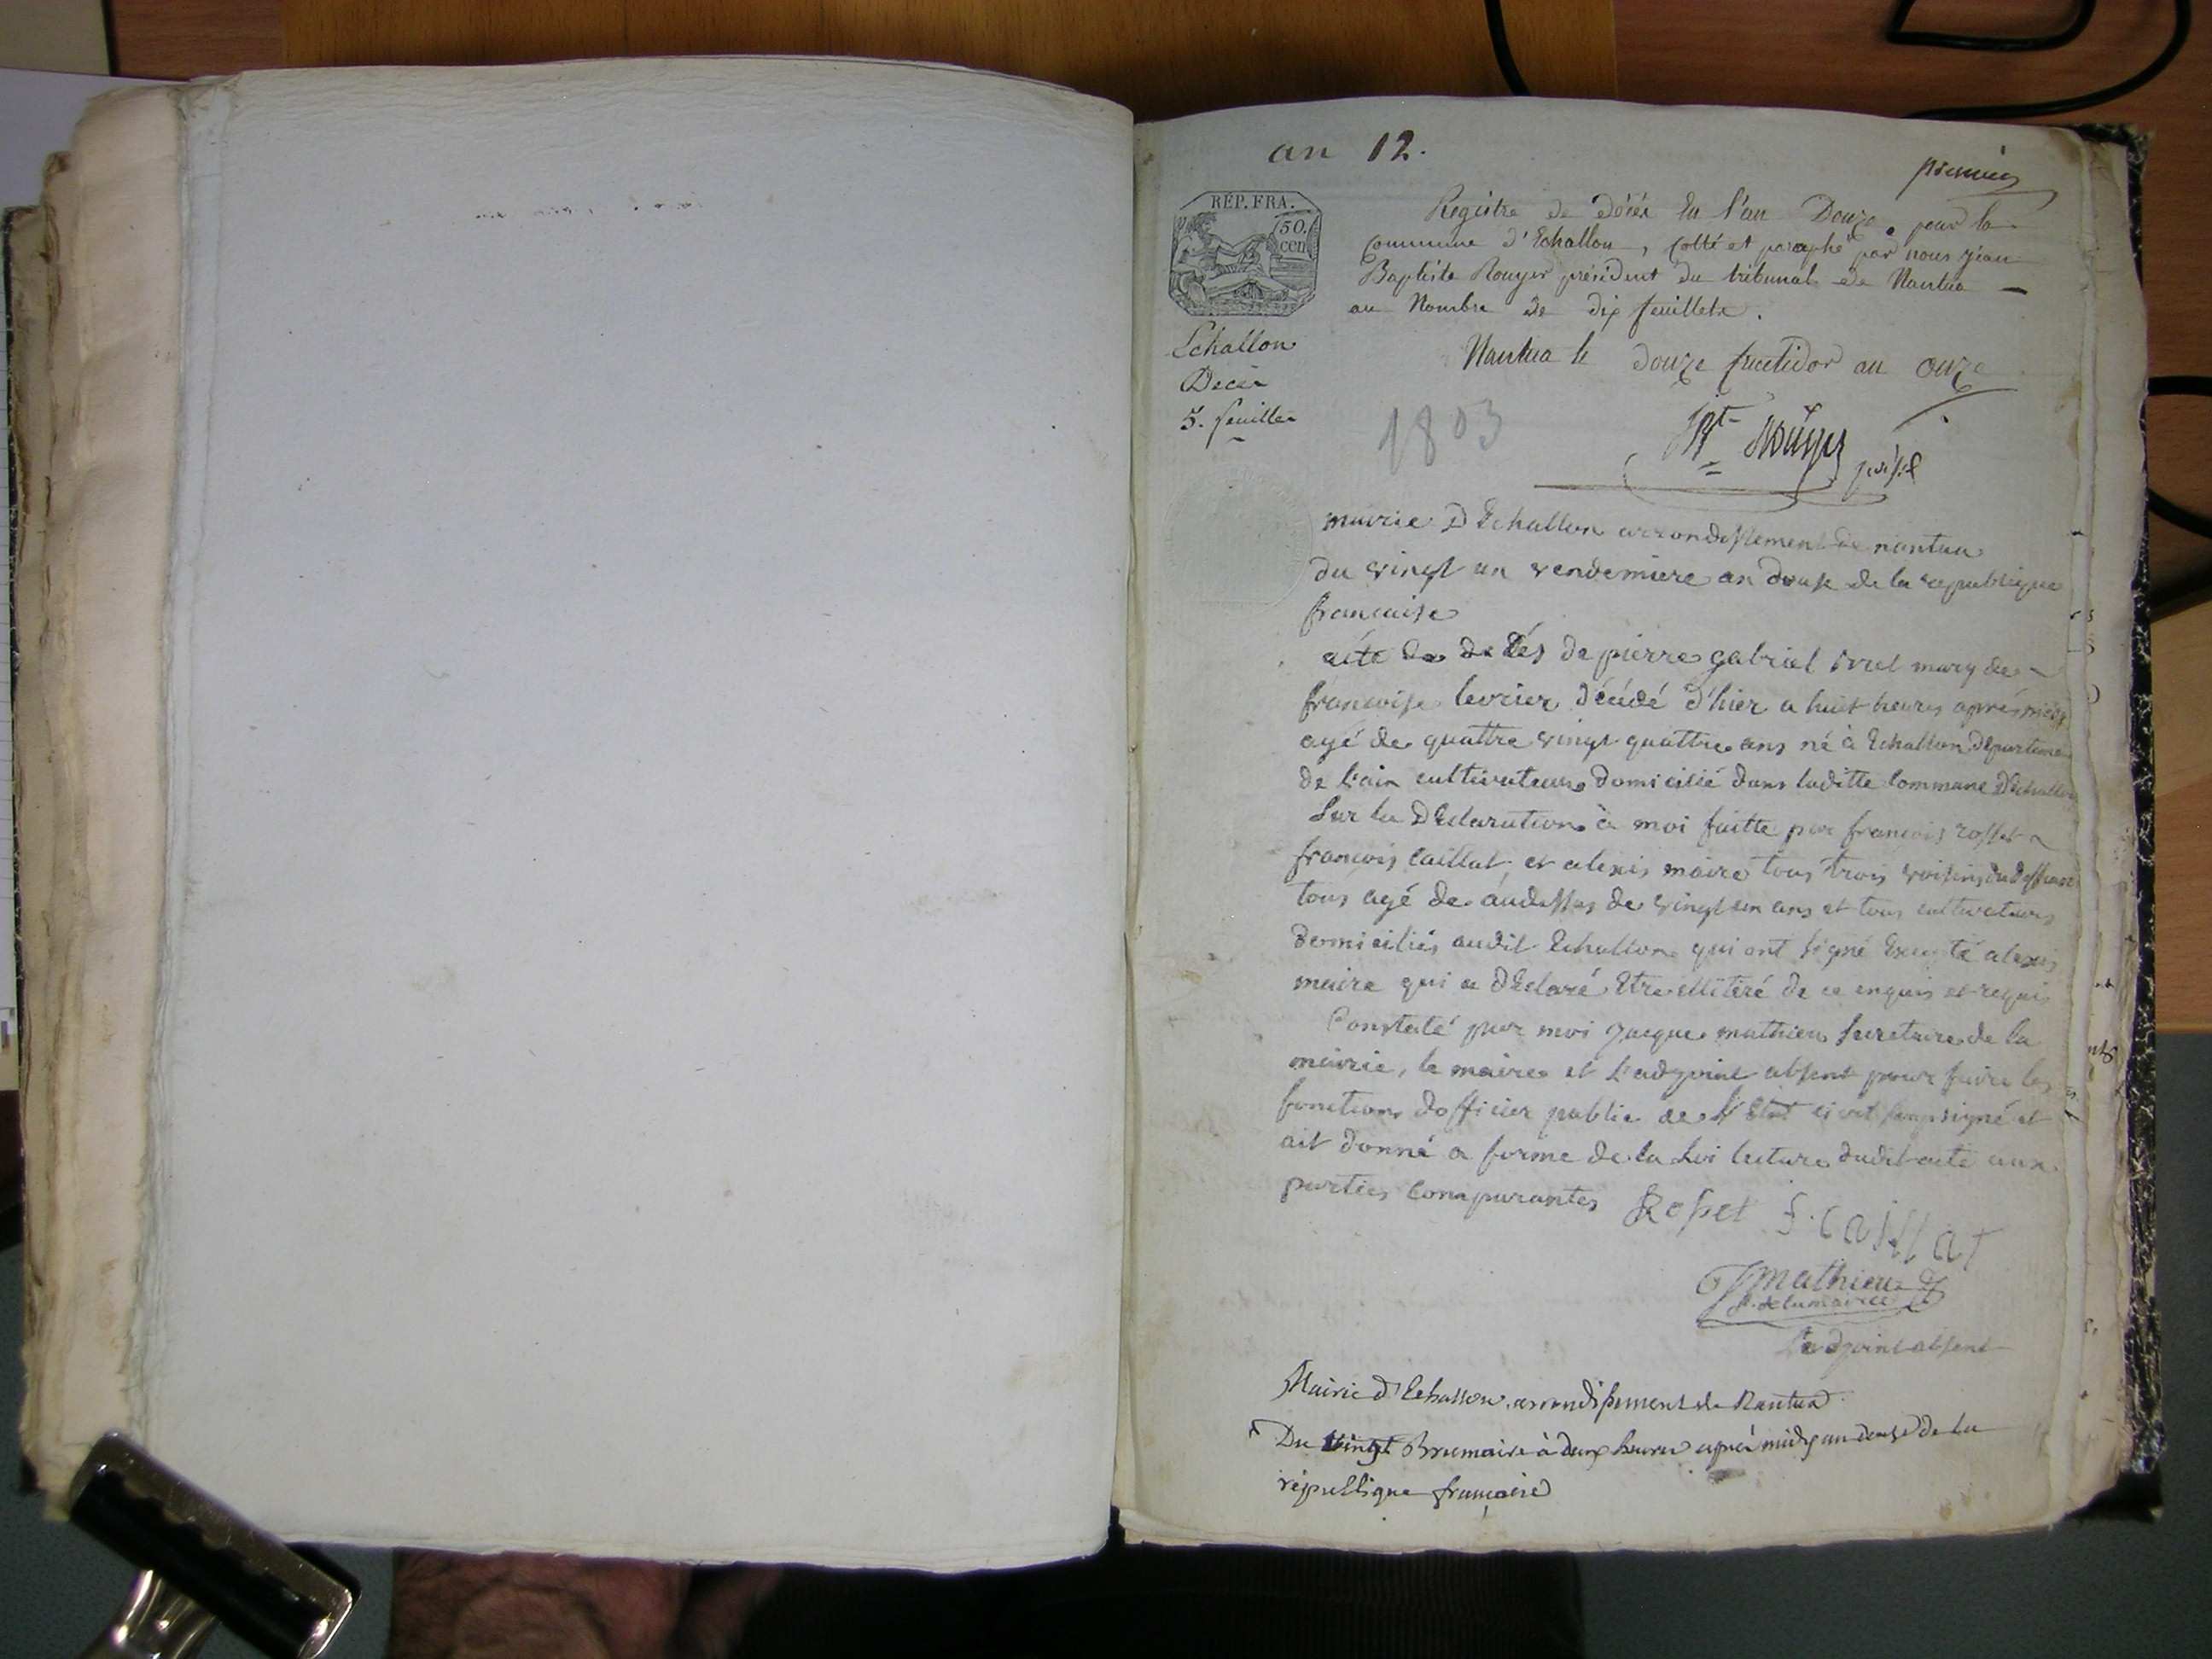 an 12.
premier
RÉP. FRA.
50.
cen
Registre de décès En l'an Douze pour la
Commune d'Echallon, Cotté et paraphé par nous Jean
Baptiste Rouyer président du tribunal de Nantua
au Nombre de dix feuillets.
Echallon
Décès
5. feuilles
Nantua le douze fructidor an onze
1803
Bte Rouyer
mairie D'Echallon arrondissement de nantua
du vingt un vendemiere an douse de la republique
francaise
acte de de dés de pierre gabriel mary de
francoise levrier décédé d'hier a huit heures aprés midy
agé de quattre vingt quattre ans né à Echallon départeme
de l'ain cultivateur domicilié dans laditte Commune D'Echallon
Sur la Déclaration à moi faitte par francois rosset
francois Caillat, et alexis maire tous trois voisins du deffunt
tous agé de audessus de vingt un ans et tous cultivateurs
domiciliés audit Echallon qui ont signé Excepté alexis
maire qui a Déclaré Etre illitéré de ce enquis et requis
Constaté par moi Jacque mathieu Secretaire de la
mairie, le maire et L'adjoint absent pour faire les
fonction dofficier public de l'Etat civil soupsigné et
ait donné a forme de la Loi lecture dudit acte aux
parties Comparantes Roset f. caillat
J mathieu
s. de la mairie
L'adjoint absent
Mairie d'Echallon, arrondissement de Nantua
Du vingt Brumaire à deux heures après midy an douse de la
république française